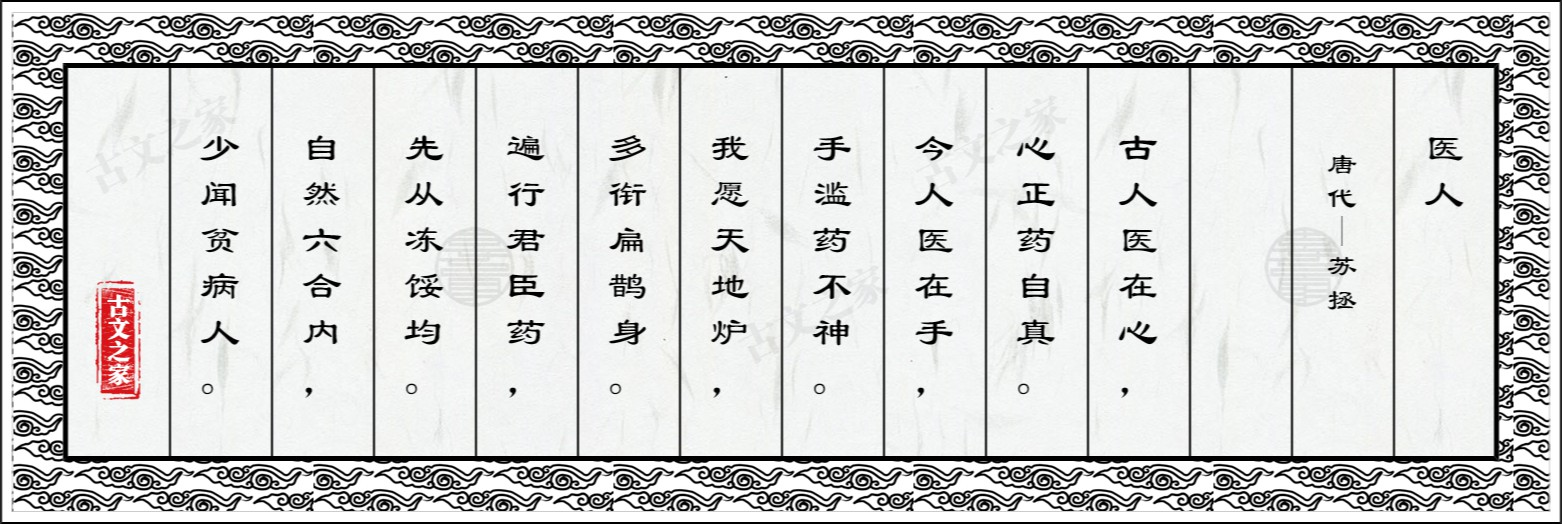 医人
唐代—苏拯
古人医在心，
心正药自真。
今人医在手，
手滥药不神。
我愿天地炉，
多衔扁鹊身。
遍行君臣药，
先从冻馁均。
自然六合内，
少闻贫病人。
古文之家
古文之家
古文之家
古文之家